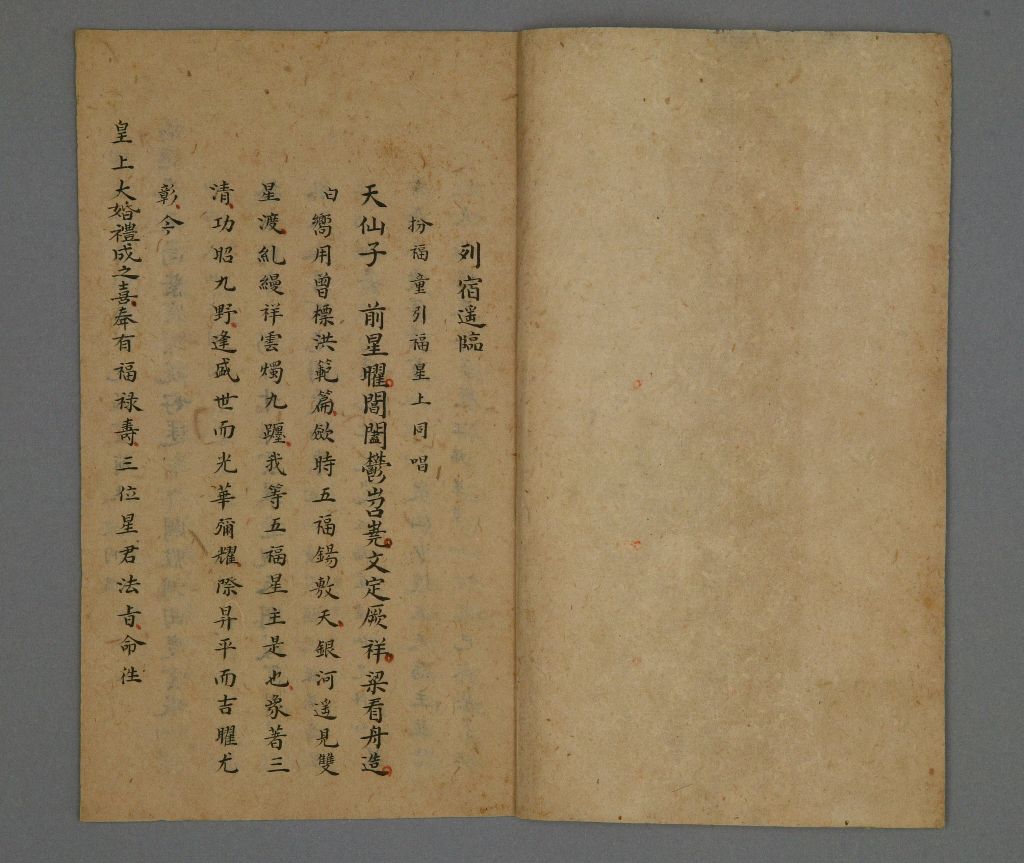 列宿遥臨
扮福童引福星上同唱
天仙子 前星曜閶闔鬱岧嶤文定厥祥梁看舟造
白嚮用曾標洪範篇歛時五福錫敷天銀河遥見雙
星渡糺縵祥雲燭九躔我等五福星主是也象著三
清功昭九野逢盛世而光華彌耀際昇平而吉曜尤
彰今
皇上大婚禮成之喜奉有福禄壽三位星君法旨命徃